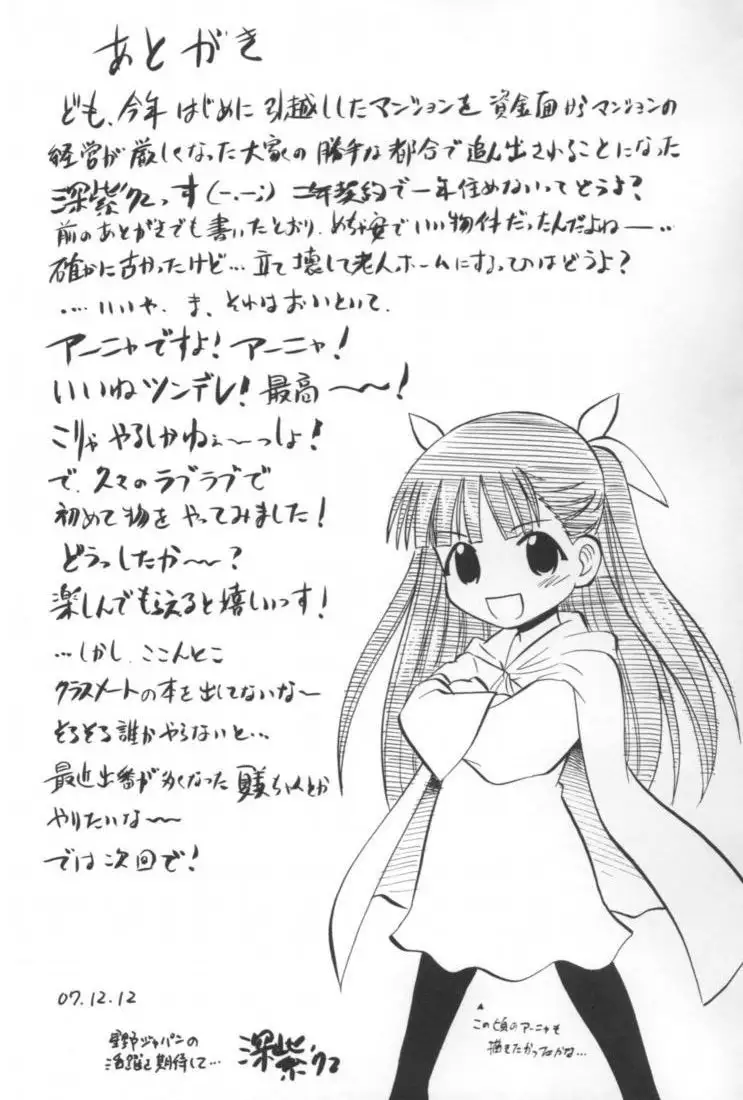 あとがき
ども、今年はじめに引越ししたマンションを資金面からマンションの
経営が厳しくなった大家の勝手な都合で追ん出されることになった
深紫クニっす(-.-;) 二年契約で一年住めないってどうよ?
前のあとがきでも書いたとおり、めちゃ安でいい物件だったんだよねー…
確かに古かったけど…立て壊して老人ホームにするってのはどうよ?
‥‥いいや、ま、それはおいといて、
アーニャですよ!アーニャ!
いいねツンデレ!最高〜〜!
こりゃやるしかねぇ〜っしょ!
で、久々のラブラブで
初めて物をやってみました!
どうっしたか〜〜?
楽しんでもらえると嬉しいっす!
…しかし、ここんとこ
クラスメートの本を出してないな〜
そろそろ誰かやらないと…
最近出番が多くなった ちゃんとか
やりたいな〜〜
では次回で!
07.12.12
星野ジャパンの
活躍を期待して…
深紫クニ
この頃のアーニャも
描きたかったかな…